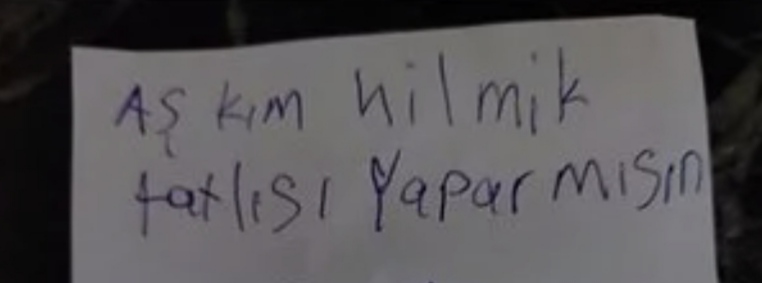 Aşkım hilmik
tatlısı yaparmısın